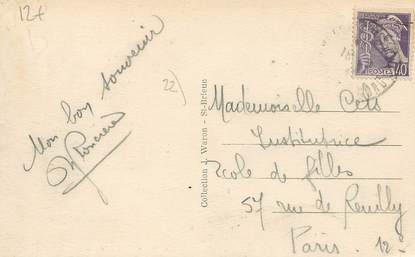 12+
Mon bon souvenir
22)
Collection J. Waron - St-Brieuc
POSTES
40
Mademoiselle
Institutrice
Ecole de filles
57 rue de Reuilly
Paris. 12